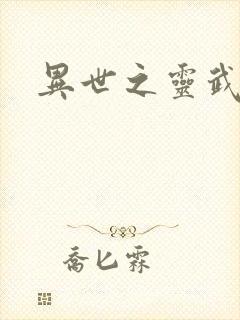 異世之靈武
喬匕霖